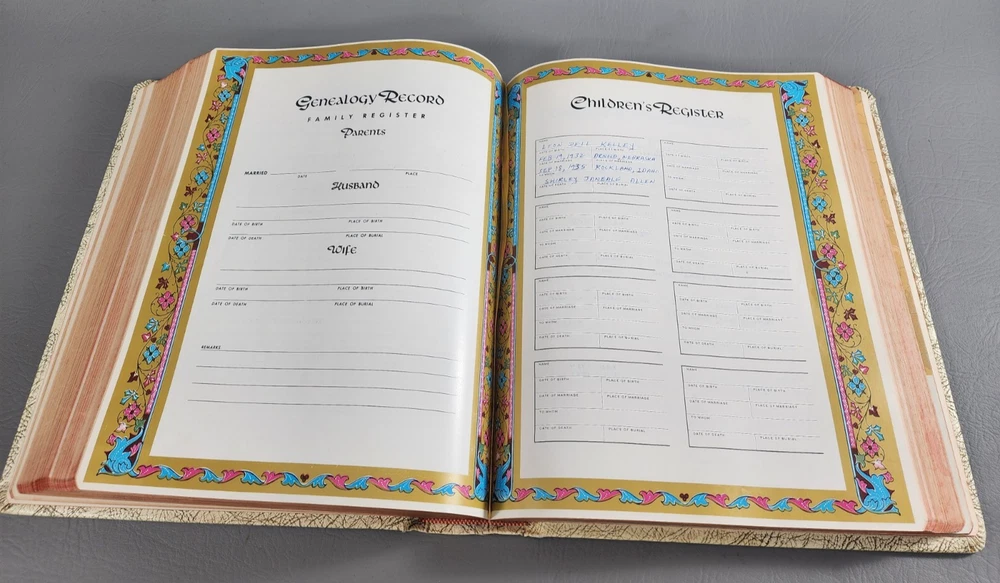 Genealogy Record
FAMILY REGISTER
Parents
MARRIED
DATE PLACE
Husband
DATE OF BIRTH PLACE OF BIRTH
DATE OF DEATH PLACE OF BURIAL
Wife
DATE OF BIRTH PLACE OF BIRTH
DATE OF DEATH PLACE OF BURIAL
REMARKS
Children's Register
NEIL KELLEY
DATE OF BIRTH PLACE OF BIRTH
FEB 19, ARNOLD, NEBRASKA
DATE OF MARRIAGE PLACE OF MARRIAGE
ROCKLAND, IDAHO
TO WHOM
SHIRLEY ALLEN
DATE OF DEATH PLACE OF BURIAL
NAME
DATE OF BIRTH PLACE OF BIRTH
DATE OF MARRIAGE PLACE OF MARRIAGE
TO WHOM
DATE OF DEATH PLACE OF BURIAL
NAME
DATE OF BIRTH PLACE OF BIRTH
DATE OF MARRIAGE PLACE OF MARRIAGE
TO WHOM
DATE OF DEATH PLACE OF BURIAL
NAME
DATE OF BIRTH PLACE OF BIRTH
DATE OF MARRIAGE PLACE OF MARRIAGE
TO WHOM
DATE OF DEATH PLACE OF BURIAL
NAME
DATE OF BIRTH PLACE OF BIRTH
DATE OF MARRIAGE PLACE OF MARRIAGE
TO WHOM
DATE OF DEATH PLACE OF BURIAL
NAME
DATE OF BIRTH PLACE OF BIRTH
DATE OF MARRIAGE PLACE OF MARRIAGE
TO WHOM
DATE OF DEATH PLACE OF BURIAL
NAME
DATE OF BIRTH PLACE OF BIRTH
DATE OF MARRIAGE PLACE OF MARRIAGE
TO WHOM
DATE OF DEATH PLACE OF BURIAL
NAME
DATE OF BIRTH PLACE OF BIRTH
DATE OF MARRIAGE PLACE OF MARRIAGE
TO WHOM
DATE OF DEATH PLACE OF BURIAL